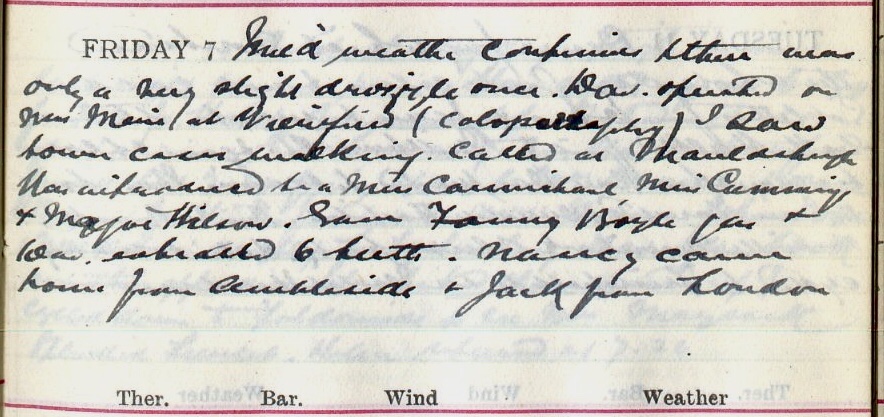 FRIDAY 7 Mild weather continues & there was
only a very slight drizzle once. Dav. operated on
Mrs Meiri at Viewfield (colopexrraphy) I saw
town cases walking. Called at Mauldsheugh
Was introduced to a Miss Carmichael Miss Cumming
& Major Wilson. Gave Fanny Boyle gas &
Dav. extracted 6 teeth. Nancy came
home from Ambleside & Jack from London
Ther. Bar. Wind Weather